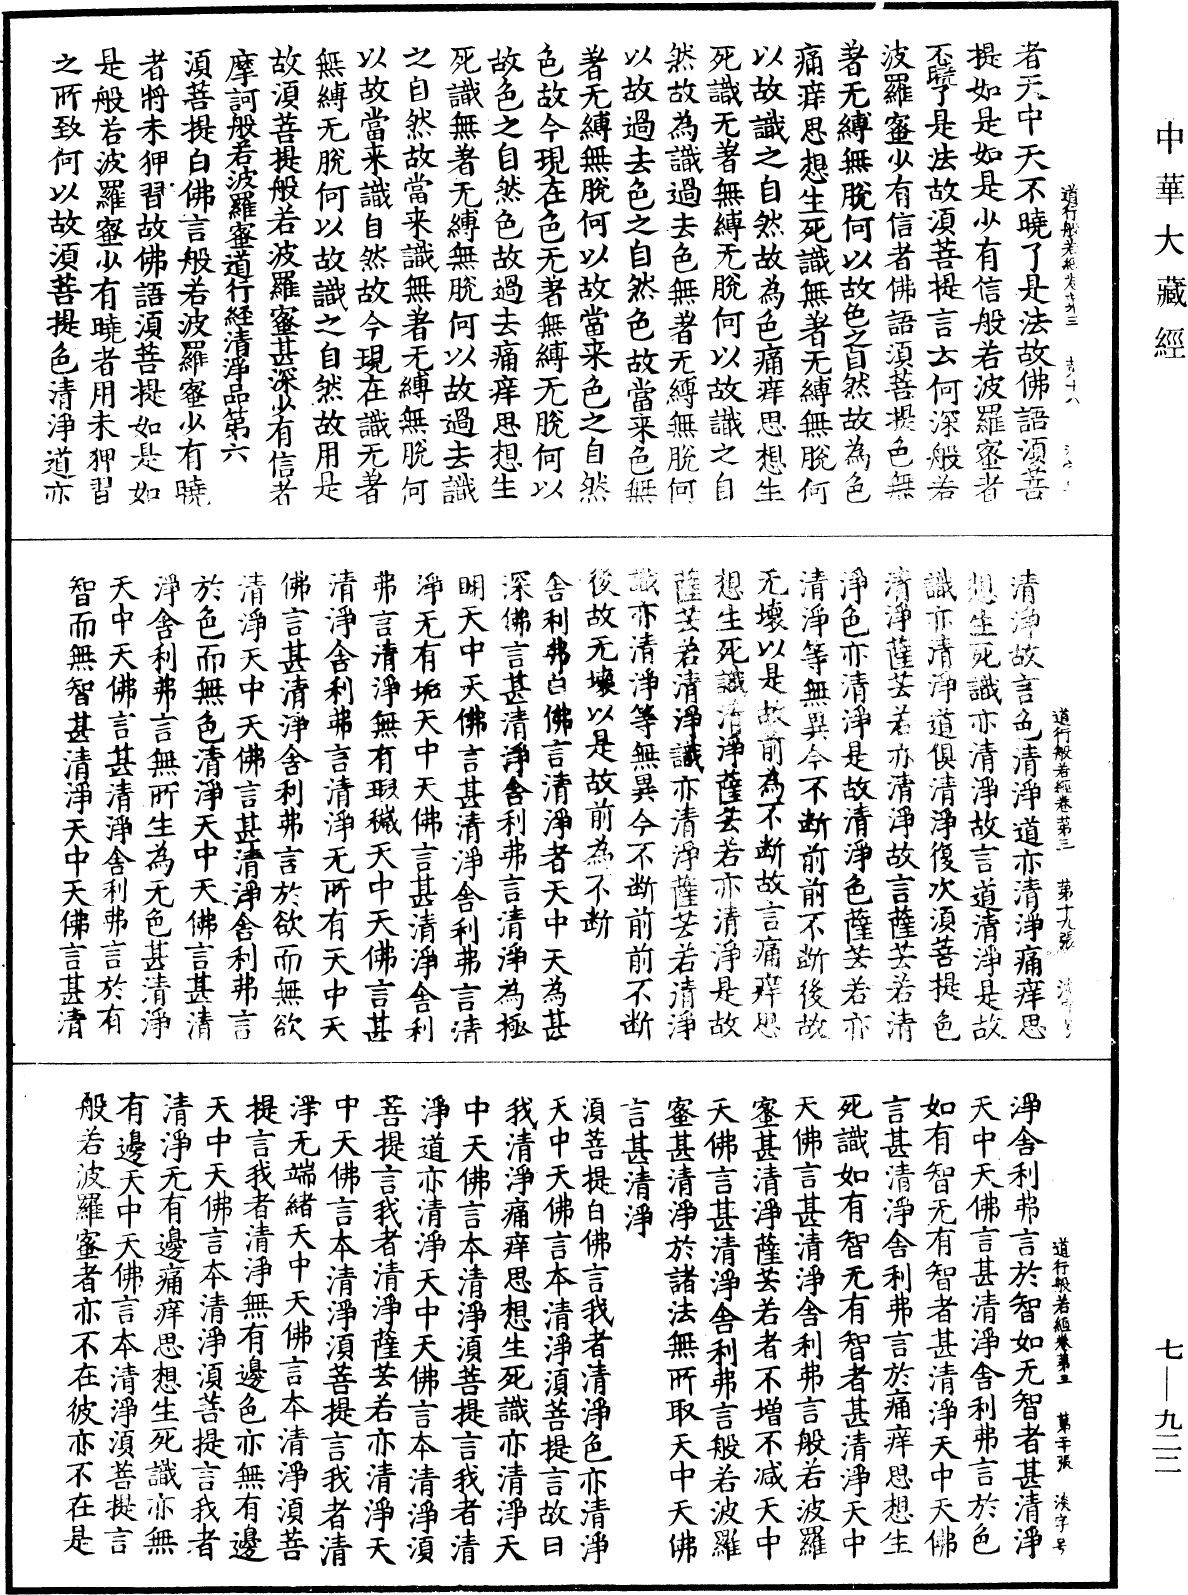 中華大藏經
七—九二二
道行般若經卷第三
者天中天不曉了是法故佛語湏菩
提如是如是少有信般若波羅蜜者
不曉了是法故湏菩提言云何深般若
波羅蜜少有信者佛語湏菩提色無
著无縛無脫何以故色之自然故為色
痛痒思想生死識無著无縛無脫何
以故識之自然故為色痛痒思想生
死識无著無縛无脫何以故識之自
然故為識過去色無著无縛無脫何
以故過去色之自然色故當来色無
著无縛無脫何以故當来色之自然
色故今現在色无著無縛无脫何以
故色之自然色故過去痛痒思想生
死識無著无縛無脫何以故過去識
之自然故當来識無著无縛無脫何
以故當来識自然故今現在識无著
無縛无脫何以故識之自然故用是
故湏菩提般若波羅蜜甚深少有信者
摩訶般若波羅蜜道行經清淨品第六
湏菩提白佛言般若波羅蜜少有曉
者將未狎習故佛語湏菩提如是如
是般若波羅蜜少有曉者用未狎習
之所致何以故湏菩提色清淨道亦
道行般若經卷第三 第十九張
清淨故言色清淨道亦清淨痛痒思
想生死識亦清淨故言道清淨是故
識亦清淨道俱清淨復次湏菩提色
清淨薩芸若亦清淨故言薩芸若清
淨色亦清淨是故清淨色薩芸若亦
清淨等無異今不断前前不断後故
无壞以是故前為不断故言痛痒思
想生死識清淨薩芸若亦清淨是故
薩芸若清淨識亦清淨薩芸若清淨
識亦清淨等無異今不断前前不断
後故无壞以是故前為不断
舍利弗白佛言清淨者天中天為甚
深佛言甚清淨舍利弗言清淨為極
明天中天佛言甚清淨舍利弗言清
淨无有垢天中天佛言甚清淨舍利
弗言清淨無有瑕穢天中天佛言甚
清淨舍利弗言清淨无所有天中天
佛言甚清淨舍利弗言於欲而無欲
清淨天中天佛言甚清淨舍利弗言
於色而無色清淨天中天佛言甚清
淨舍利弗言無所生為无色甚清淨
天中天佛言甚清淨舍利弗言於有
智而無智甚清淨天中天佛言甚清
道行般若經卷第三 第二十張 淡字号
淨舍利弗言於智如无智者甚清淨
天中天佛言甚清淨舍利弗言於色
如有智无有智者甚清淨天中天佛
言甚清淨舍利弗言於痛痒思想生
死識如有智无有智者甚清淨天中
天佛言甚清淨舍利弗言般若波羅
蜜甚清淨薩芸若者不增不减天中
天佛言甚清淨舍利弗言般若波羅
蜜甚清淨於諸法無所取天中天佛
言甚清淨
湏菩提白佛言我者清淨色亦清淨
天中天佛言本清淨湏菩提言故曰
我清淨痛痒思想生死識亦清淨天
中天佛言本清淨湏菩提言我者清
淨道亦清淨天中天佛言本清淨湏
菩提言我者清淨薩芸若亦清淨天
中天佛言本清淨湏菩提言我者清
淨无端緒天中天佛言本清淨湏菩
提言我者清淨無有邊色亦無有邊
天中天佛言本清淨湏菩提言我者
清淨无有邊痛痒思想生死識亦無
有邊天中天佛言本清淨湏菩提言
般若波羅蜜者亦不在彼亦不在是